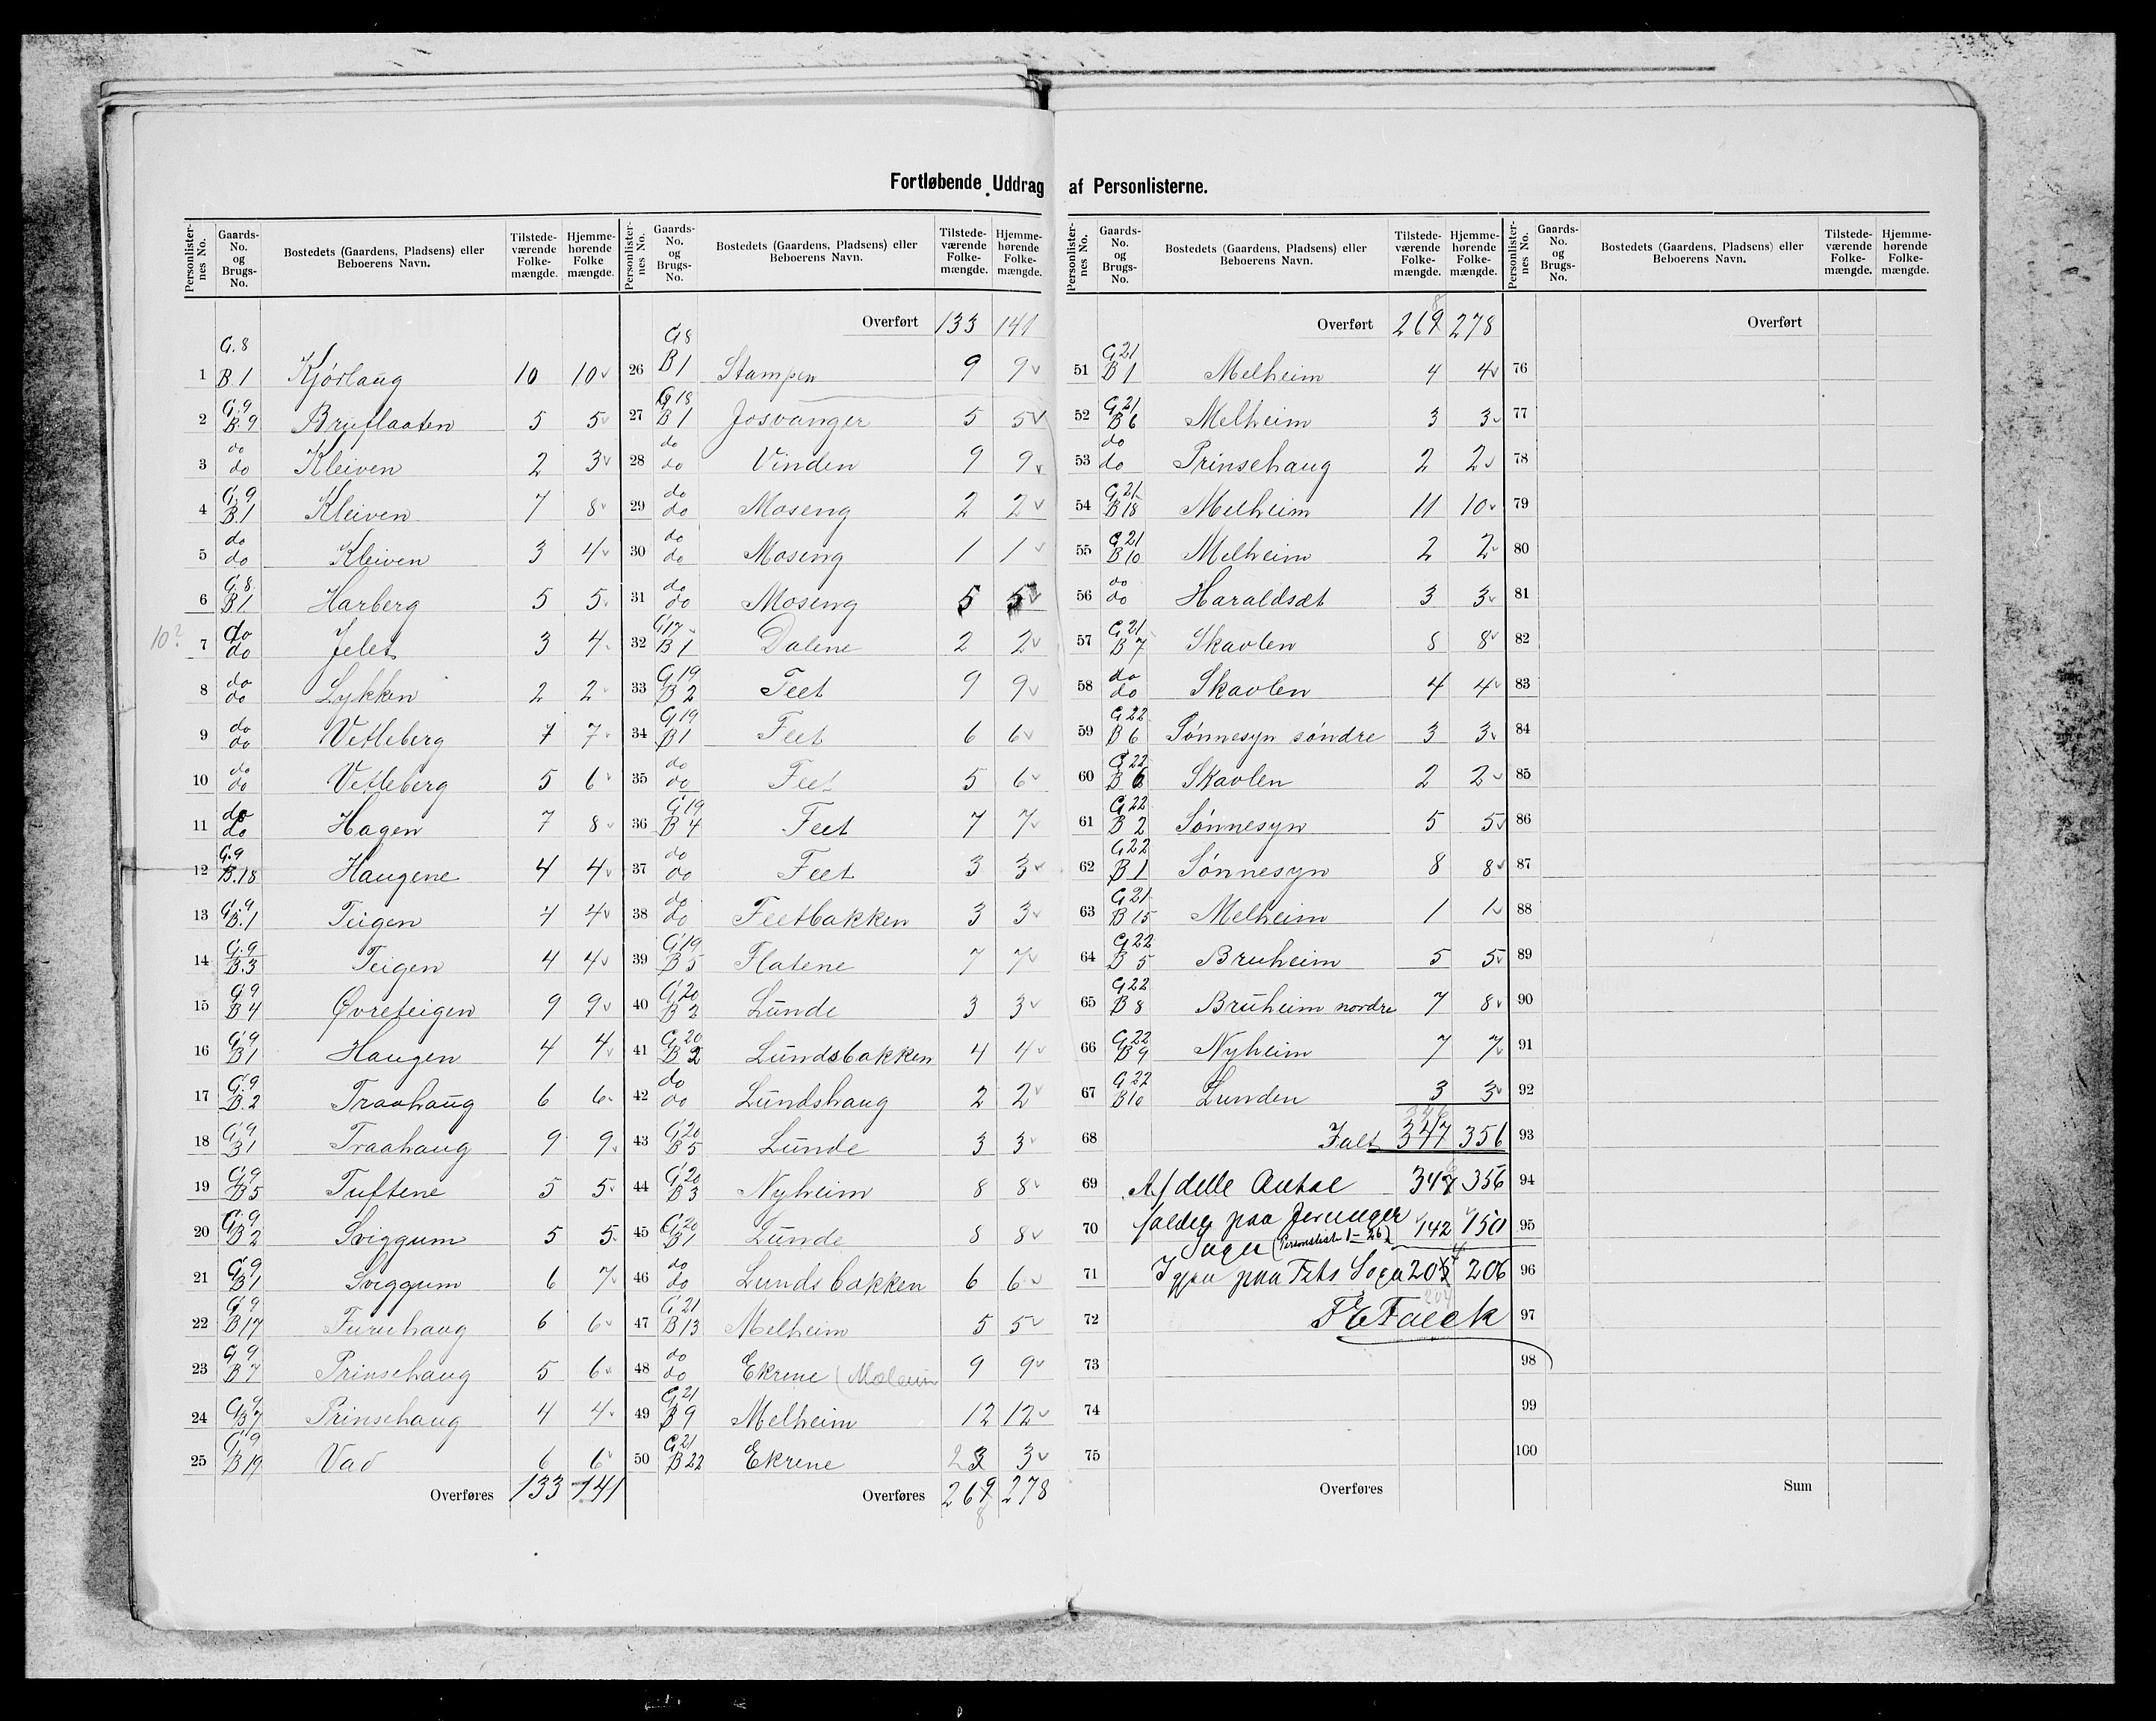 Fortløbende Uddrag af Personlisterne.
Personlisternes No. Gaards-No. og Brugs-No. Bostedets (Gaardens, Pladsens) eller Beboerens Navn. Tilstedeværende Folkemængde. Hjemmehørende Folkemængde.
1 G.8 B.1 Kjørlaug 10 10
2 G.9 B.9 Bruflaaten 5 5
3 do do Kleiven 2 3
4 G.9 B.1 Kleiven 7 8
5 do do Kleiven 3 4
6 G.8 B1 Harberg 5 5
10? 7 do do Jelet 3 4
8 do do Lykken 2 2
9 do do Vetleberg 7 7
10 do do Vetleberg 5 6
11 do do Hagen 7 8
12 G.9 B.18 Haugene 4 4
13 G.9 B.1 Teigen 4 4
14 G.9 B.3 Teigen 4 4
15 G9 B4 Øvreteigen 9 9
16 G9 B1 Haugen 4 4
17 G.9 B.2 Traahaug 6 6
18 G9 B1 Traahaug 9 9
19 G9 B5 Tuftene 5 5
20 G.9 B2 Sviggum 5 5
21 G.9 B1 Sviggum 6 7
22 G9 B17 Furuhaug 6 6
23 G9 B7 Prinsehaug 5 6
24 G9 B7 Prinsehaug 4 4
25 G9 B19 Vad 6 6
Overføres 133 141
Personlisternes No. Gaards-No. og Brugs-No. Bostedets (Gaardens, Pladsens) eller Beboerens Navn. Tilstedeværende Folkemængde. Hjemmehørende Folkemængde.
Overført 133 141
26 G8 B1 Stampen 9 9
27 G18 B1 Josvanger 5 5
28 do do Vinden 9 9
29 do do Moseng 2 2
30 do do Moseng 1 1
31 do do Moseng 5 5
32 G17 B1 Dalene 2 2
33 G19 B2 Feet 9 9
34 G19 B1 Feet 6 6
35 do do Feet 5 6
36 G19 B4 Feet 7 7
37 do do Feet 3 3
38 do do Feetbakken 3 3
39 G19 B5 Flatene 7 7
40 G20 B2 Lunde 3 3
41 G20 B2 Lundsbakken 4 4
42 do do Lundshaug 2 2
43 G20 B5 Lunde 3 3
44 G20 B3 Nyheim 8 8
45 G20 B1 Lunde 8 8
46 do do Lundsbakken 6 6
47 G21 B13 Melheim 5 5
48 do do Ekrene 9 9
49 G21 B9 Melheim 12 12
50 G21 B22 Ekrene 2 3 3
Overføres 269 278
8
Personlisternes No. Gaards-No. og Brugs-No. Bostedets (Gaardens, Pladsens) eller Beboerens Navn. Tilstedeværende Folkemængde. Hjemmehørende Folkemængde.
8
Overført 269 278
51 G21 B1 Melheim 4 4
52 G21 B6 Melheim 3 3
53 do do Prinsehaug 2 2
54 G21 B18 Melheim 11 10
55 G21 B10 Melheim 2 2
56 do do Haraldsæt 3 3
57 G21 B7 Skavlen 8 8
58 do do Skavlen 4 4
59 G22 B6 Sønnesyn søndre 3 3
60 G22 B6 Skavlen 2 2
61 G22 B2 Sønnesyn 5 5
62 G22 B1 Sønnesyn 8 8
63 G21 B15 Melheim 1 1
64 G22 B5 Bruheim 5 5
65 G22 B8 Bruheim nordre 7 8
66 G22 B9 Nyheim 7 7
67 G22 B10 Lunden 3 3
346
68 Ialt 347 356
69 Af dette Antal 347 356
70 falder paa Jevnager 142 150
Sogn (Personlist 1-26)
71 Igjen paa Fets Sogn 205 206
204
72 F E Falck
73
74
75
Overføres
Personlisternes No. Gaards-No. og Brugs-No. Bostedets (Gaardens, Pladsens) eller Beboerens Navn. Tilstedeværende Folkemængde. Hjemmehørende Folkemængde.
Overført
76
77
78
79
80
81
82
83
84
85
86
87
88
89
90
91
92
93
94
95
96
97
98
99
100
Sum